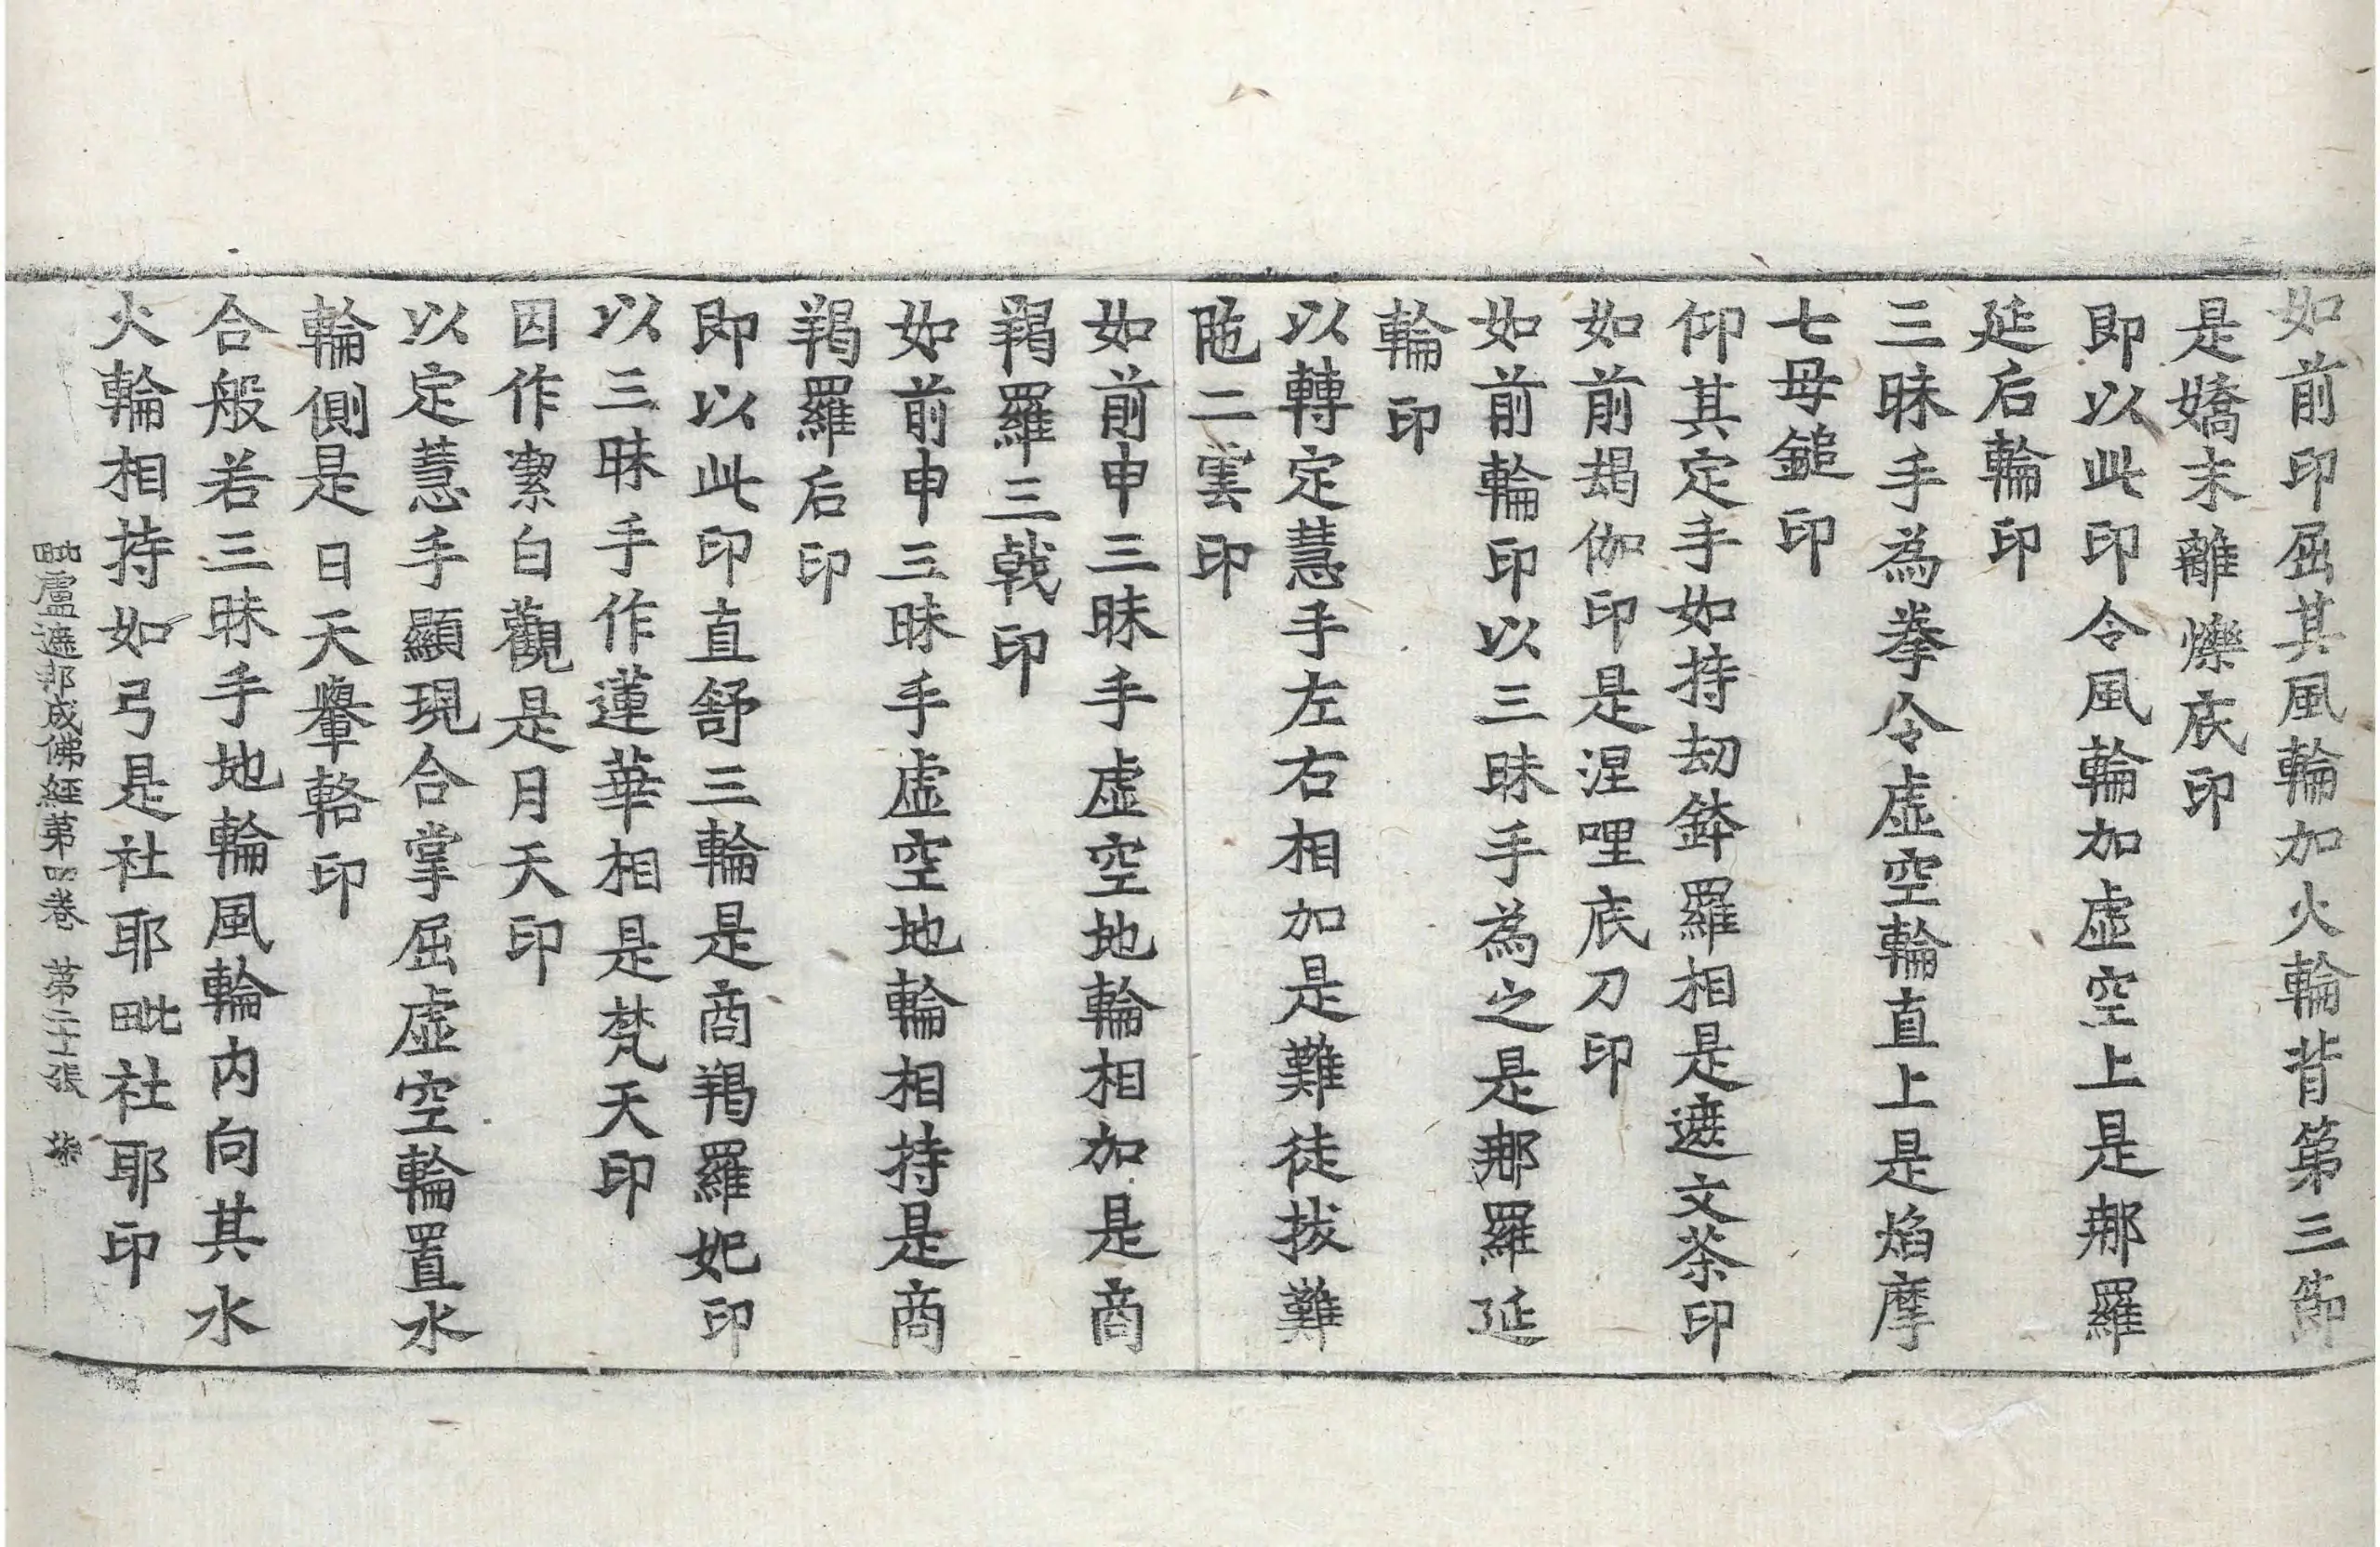 如前印屈其風輪加火輪背第三節
是嬌末離爍底印
即以此印令風輪加虛空上是那羅
延后輪印
三昧手為拳令虛空輪直上是焰摩
七母鎚印
仰其定手如持劫鉢羅相是遮文茶印
如前朅伽印是涅哩底刀印
如前輪印以三昧手為之是那羅延
輪印
以轉定慧手左右相加是難徒拔難
陁二雲印
如前申三昧手虛空地輪相加是商
羯羅三戟印
如前申三昧手虛空地輪相持是商
羯羅后印
即以此印直舒三輪是商羯羅妃印
以三昧手作蓮華相是梵天印
因作潔白觀是月天印
以定慧手顯現合掌屈虛空輪置水
輪側是日天轝輅印
合般若三昧手地輪風輪內向其水
火輪相持如弓是社耶毗社耶印
毗盧遮那成佛經第四卷 第二十張